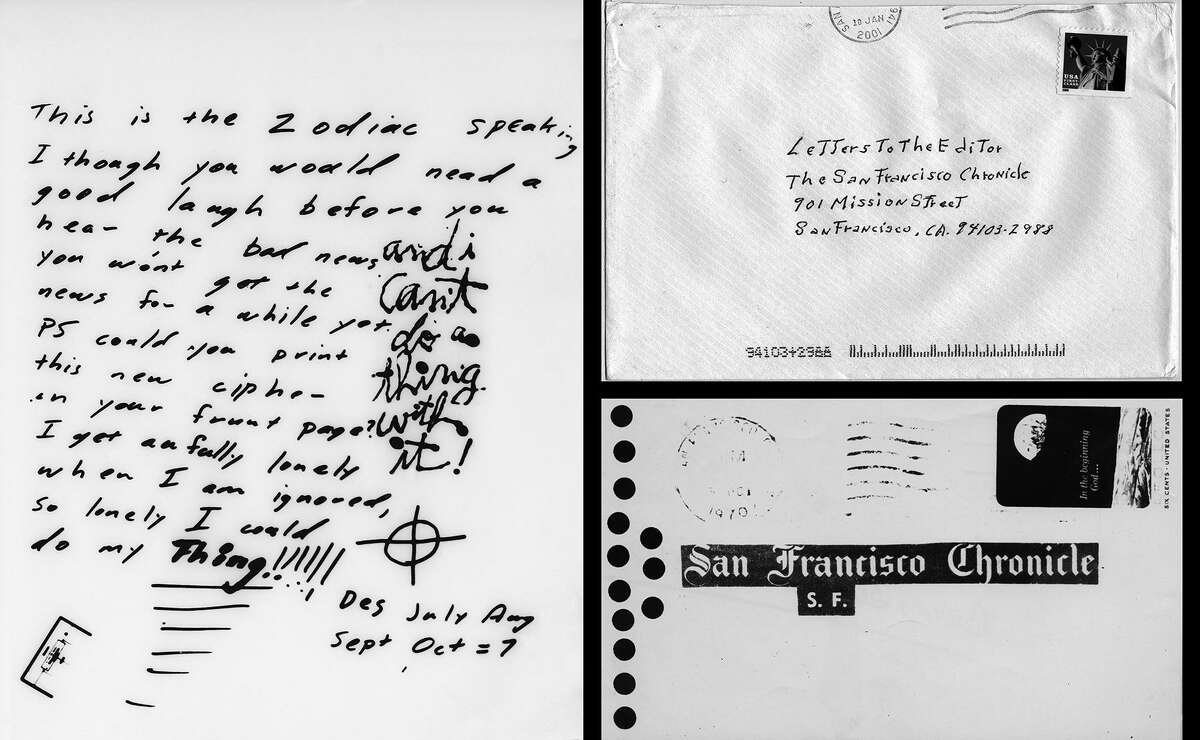 This is the Zodiac speaking
I though you would nead a
good laugh before you
hear the bad news
you won't get the
news for a while yet.
PS could you print
this new cipher
on your frunt page?
I get awfully lonely
when I am ignored,
so lonely I could
do my Thing!!!!!!
and i
can't
do a
thing
with
it!
Des July Aug
Sept Oct = 7
SAN
10 JAN
2001
941
USA
FIRST
CLASS
LeTTers To The EdiTor
The San Francisco Chronicle
901 Mission STreeT
San Francisco, CA. 94103-2988
94103+2988
1970
In the beginning
God...
SIX CENTS · UNITED STATES
San Francisco Chronicle
S. F.